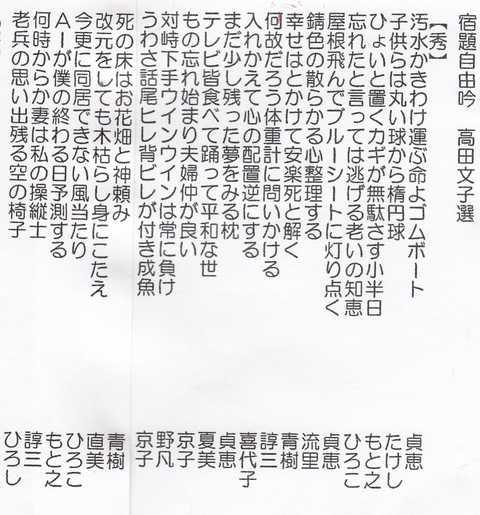 宿題自由吟　高田文子選
【秀】
汚水かきわけ運ぶ命よゴムボート　貞恵
子供らは丸い球から楕円球　たけし
ひょいと置くカギが無駄さす小半日　もと之
忘れたと言っては逃げる老いの知恵　ひろこ
屋根飛んでブルーシートに灯り点く　貞恵
錆色の散らかる心整理する　流里
幸せはとかけて安楽死と解く　青樹
何故だろう体重計に問いかける　諄三
入れかえて心の配置逆にする　喜代子
まだ少し残った夢をみる枕　貞恵
テレビ皆食べて踊って平和な世　夏美
もの忘れ始まり夫婦仲が良い　京子
対峙下手ウインウインは常に負け　野凡
うわさ話尾ヒレ背ビレが付き成魚　京子
死の床はお花畑と神頼み　青樹
改元をしても木枯らし身にこたえ　直美
今更に同居できない風当たり　ひろこ
AIが僕の終わる日予測する　もと之
何時からか妻は私の操縦士　諄三
老兵の思い出残る空の椅子　ひろし